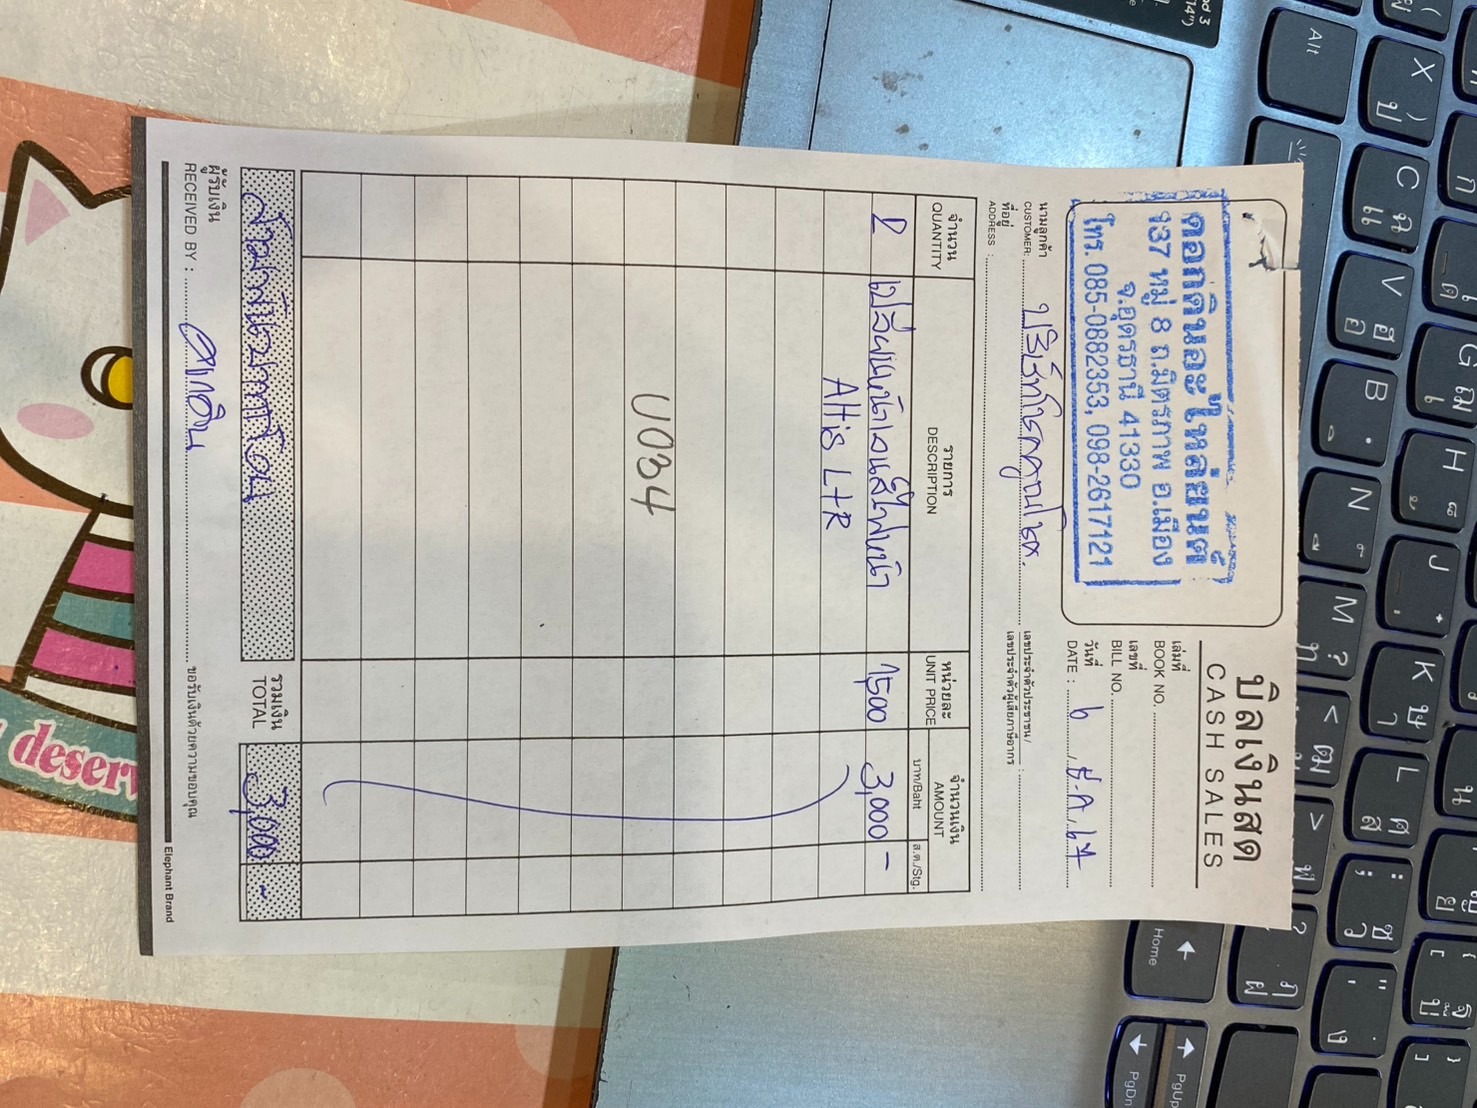 บิลเงินสด
CASH SALES
ดอกดินอะไหล่ยนต์
137 หมู่ 8 ถ.มิตรภาพ อ.เมือง
จ.อุดรธานี 41330
โทร. 085-0882353, 098-2617121
เล่มที่
BOOK NO.
เลขที่
BILL NO.
วันที่
DATE : 6 ธ.ค. 67
นามลูกค้า
CUSTOMER:
ที่อยู่
ADDRESS :
เลขประจำตัวประชาชน/
เลขประจำตัวผู้เสียภาษีอากร :
จำนวน รายการ หน่วยละ จำนวนเงิน
QUANTITY DESCRIPTION UNIT PRICE AMOUNT
บาท/Baht ส.ต./Stg.
2 ไฟหน้า 1,500 3,000 -
Altis L+R
U034
สามพันบาทถ้วน รวมเงิน 3,000 -
TOTAL
ผู้รับเงิน
RECEIVED BY : ดอกดิน ขอรับเงินด้วยความขอบคุณ
Elephant Brand
deserv
Alt
X ป )
C แ ฉ
V อ ฮ
B
N
M ท ? 
G เ
H
J
K า ษ
L ส ศ
Home
PgUp
PgDn